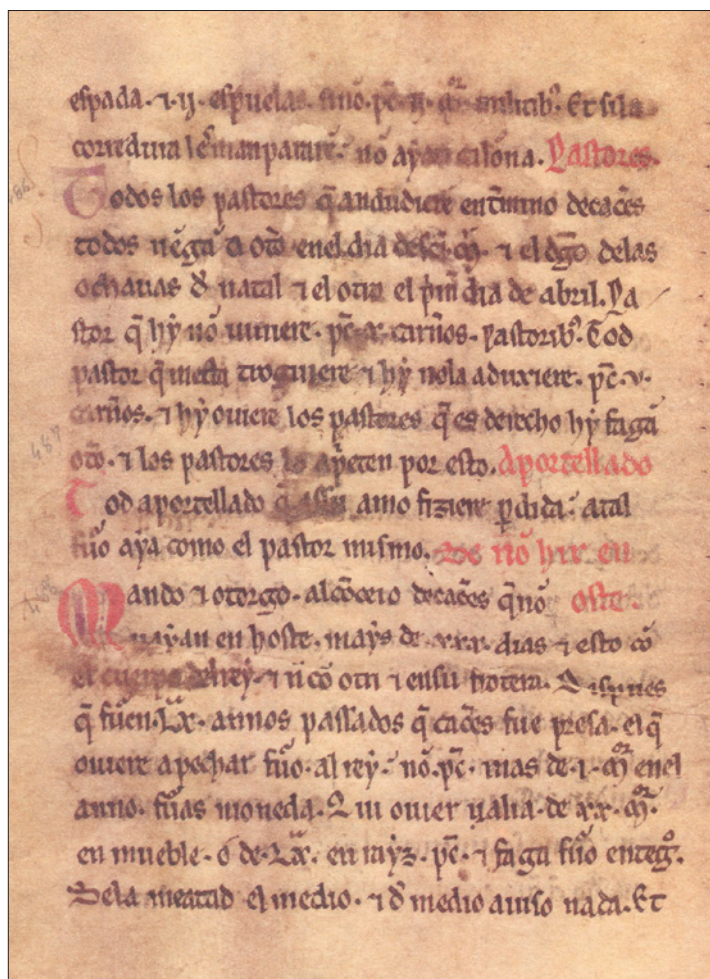 espada · ⁊ · ij · espuelas · sino · pc̄ · ij · militib⁹. Et si la
corredura les manparare · no ayan calona. Pastores.
Todos los pastores q̄ andudiere en t̄mino de cac̄es
todos uēgā a oto en el dia de · ⁊ el dgō delas
ochauas đ natal ⁊ el otro el pm̄ dia de abril. Pa
stor q̄ hy nō uiniere · pc̄ · x · carños. Pastorib⁹. Tod
pastor q̄ mesta troguiere ⁊ hy nola aduxiere · pc̄ · v ·
carños. ⁊ hy ouiere los pastores q̄ es derecho hy fagā
oto. ⁊ los pastores lo aprieten por esto. Aportellado
Tod aportellado q̄ assu amo fiziere ꝑdida atal
fuo aya como el pastor mismo. De nō hir en
Mando ⁊ otorgo · al cōceio de cac̄es q̄ nō oste.
uayan en hoste · mays de · xxx · dias ⁊ esto cō
el cuerpo del rey · ⁊ nī cō otri ⁊ ensu frotera. Despues
q̄ fuen · Lx · annos passados q̄ cac̄es fue presa · el q̄
ouiere apechar fuo · al rey · no · pc̄ · mas de · i · mr̄ enel
anno · fuas moneda. Qui ouier ualia · de xx · mr̄ ·
en mueble · o de · Lx · en rayz · pc̄ · ⁊ faga fuo enteg̊ ·
Dela meatad el medio · ⁊ đ medio aiuso nada. Et
487